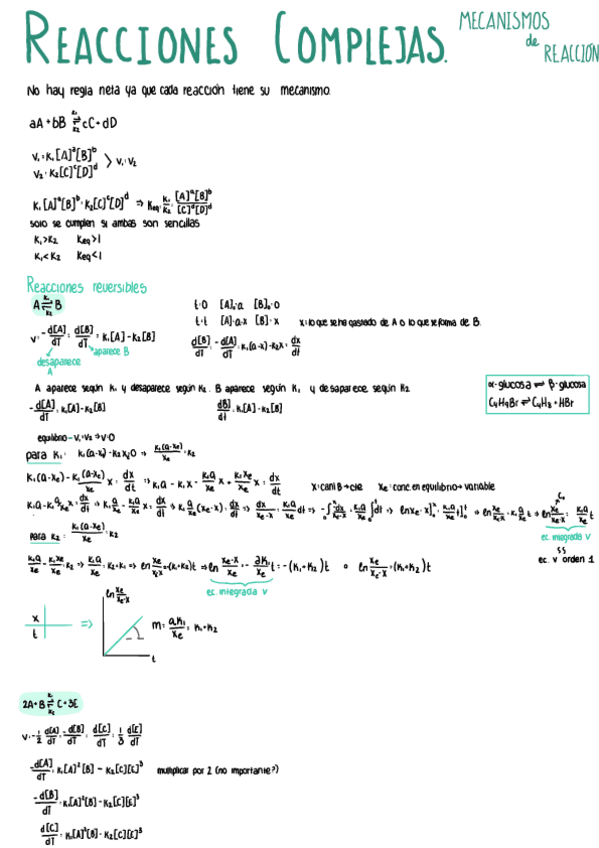 REACCIONES COMPLEJAS. MECANISMOS de REACCIÓN
No hay regla neta ya que cada reacción tiene su mecanismo.
aA + bB ⇌ cC + dD
K₁
K₂
V₁ = K₁[A]ᵃ[B]ᵇ
V₂ = K₂[C]ᶜ[D]ᵈ > V₁ = V₂
K₁[A]ᵃ[B]ᵇ = K₂[C]ᶜ[D]ᵈ ⇒ Keq = K₁/K₂ = [A]ᵃ[B]ᵇ/[C]ᶜ[D]ᵈ
solo se cumplen si ambas son sencillas
K₁>K₂ Keq>1
K₁<K₂ Keq<1
Reacciones reversibles
A ⇌ B
K₁
K₂
t=0 [A]=a [B]=0
t=t [A]=a-x [B]=x x=lo que se ha gastado de A o lo que se forma de B.
V = -d[A]/dT = d[B]/dT = K₁[A] - K₂[B]
d[B]/dT = -d[A]/dT = K₁(a-x) - K₂x = dx/dt
desaparece A
aparece B
A aparece según K₁ y desaparece según K₂. B aparece según K₁ y desaparece según K₂
-d[A]/dT = K₁[A] - K₂[B] d[B]/dt = K₁[A] - K₂[B]
α-glucosa ⇌ β-glucosa
C₄H₉Br ⇌ C₄H₈ + HBr
equilibrio → V₁=V₂ → V=0
para K₁ = K₁(a-xe) - K₂xe = 0 ⇒ K₁(a-xe)/xe = K₂
K₁(a-xe) - K₁(a-xe)/xe x = dx/dt ⇒ K₁a - K₁x - K₁a/xe x + K₁xe/xe x = dx/dt
x=cani B → cte xe = conc. en equilibrio → variable
K₁a - K₁a/xe x = dx/dt ⇒ K₁a/xe - K₁a/xe x = dx/dt ⇒ K₁a/xe (xe-x) = dx/dt ⇒ dx/xe-x = K₁a/xe dt ⇒ -∫dx/xe-x = K₁a/xe ∫dt ⇒ ln xe-x]ˣ₀ = K₁a/xe t]ᵗ₀ ⇒ ln xe/xe-x = K₁ a/xe t ⇒ ln xe/xe-x = K₁a/xe t
ec. integrada V
ss
ec. V orden 1
para K₂ = K₁(a-xe)/xe = K₂
K₁a/xe - K₁xe/xe = K₂ ⇒ K₁a/xe = K₂+K₁ ⇒ ln xe/xe-x = (K₁+K₂)t ⇒ ln xe-x/xe = -aK₁/xe t = -(K₁+K₂)t o ln xe/xe-x = (K₁+K₂)t
ec. integrada V
x
t
⇒
ln xe/xe-x
t
m = aK₁/xe = K₁+K₂
2A+B ⇌ C+3E
K₁
K₂
V = -1/2 d[A]/dT = -d[B]/dT = d[C]/dT = 1/3 d[E]/dT
-d[A]/dT = K₁[A]²[B] - K₂[C][E]³ multiplicar por 2 (no importante?)
-d[B]/dT = K₁[A]²[B] - K₂[C][E]³
d[C]/dT = K₁[A]²[B] - K₂[C][E]³